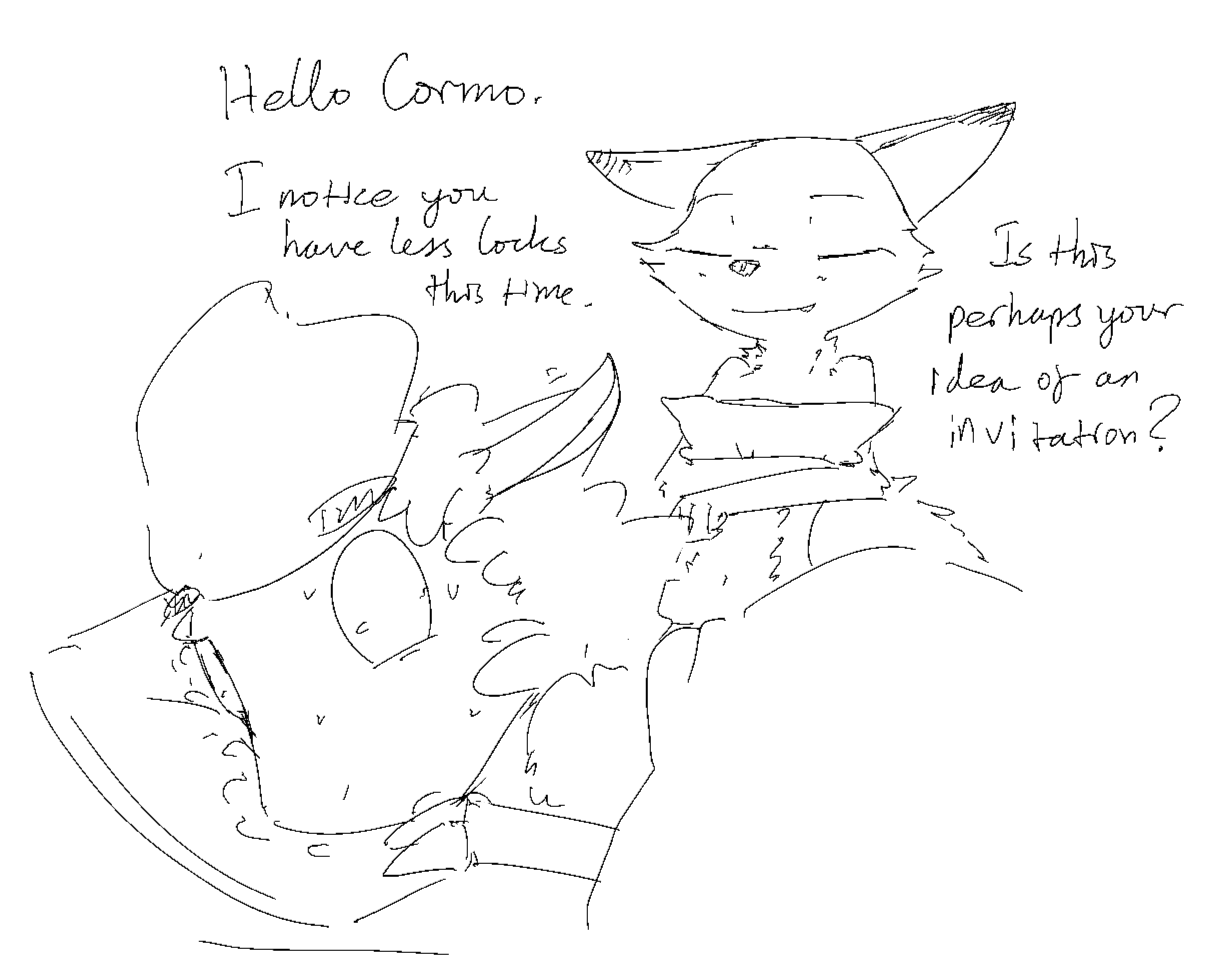 Hello Cormo.
I notice you
have less locks
this time.
Is this
perhaps your
idea of an
invitation?